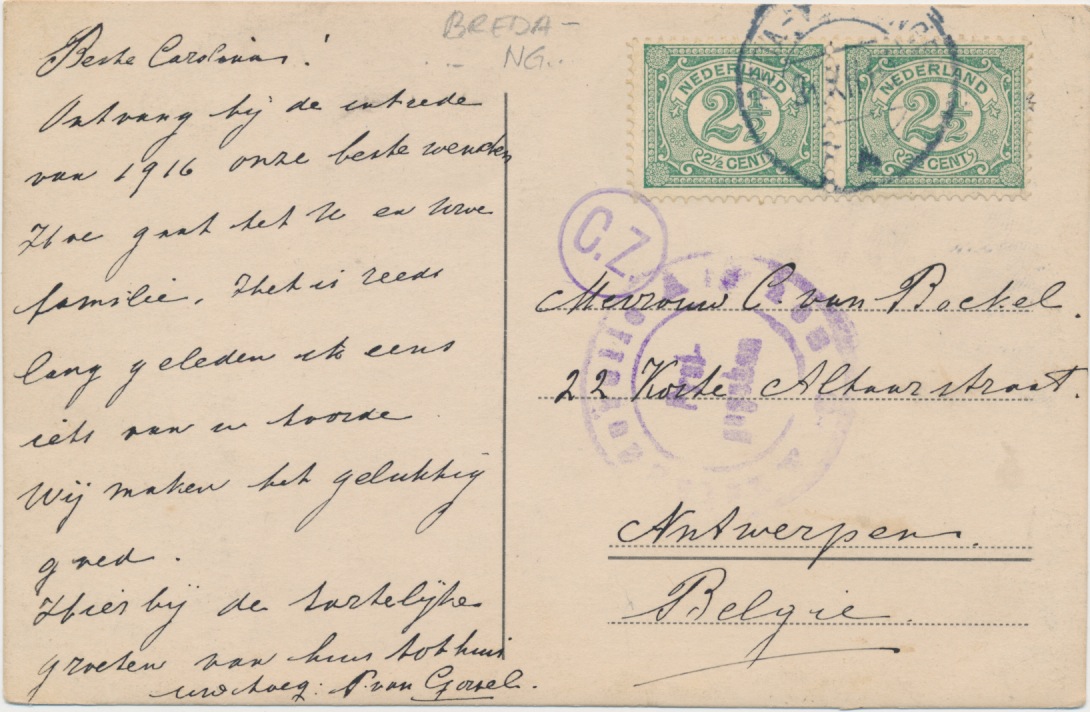 BREDA -
NG..
Beste Carolina!
Ontvang bij de intrede
van 1916 onze beste wenschen
Hoe gaat het U en Uwe
familie. Het is reeds
lang geleden ik eens
iets van u hoorde
Wij maken het gelukkig
goed.
Hierbij de hartelijke
groeten van huis tot huis
P. van
NEDERLAND
2½
2½ CENT
NEDERLAND
2½
2½ CENT
C.Z.
Mevrouw C van Bockel.
22 Korte Altaarstraat.
Antwerpen.
Belgie.